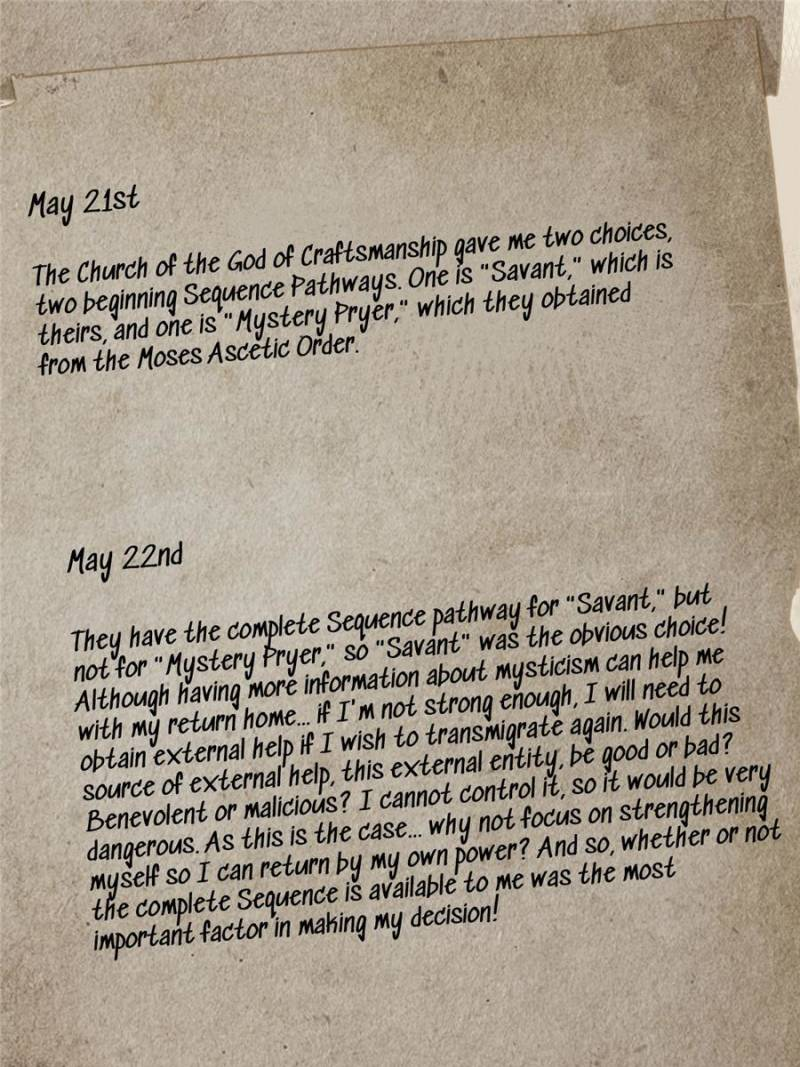 May 21st
The Church of the God of Craftsmanship gave me two choices,
two beginning Sequence Pathways. One is "Savant," which is
theirs, and one is "Mystery Pryer," which they obtained
from the Moses Ascetic Order.
May 22nd
They have the complete Sequence pathway for "Savant," but
not for "Mystery Pryer," so "Savant" was the obvious choice!
Although having more information about mysticism can help me
with my return home... if I'm not strong enough, I will need to
obtain external help if I wish to transmigrate again. Would this
source of external help, this external entity, be good or bad?
Benevolent or malicious? I cannot control it, so it would be very
dangerous. As this is the case... why not focus on strengthening
myself so I can return by my own power? And so, whether or not
the complete Sequence is available to me was the most
important factor in making my decision!